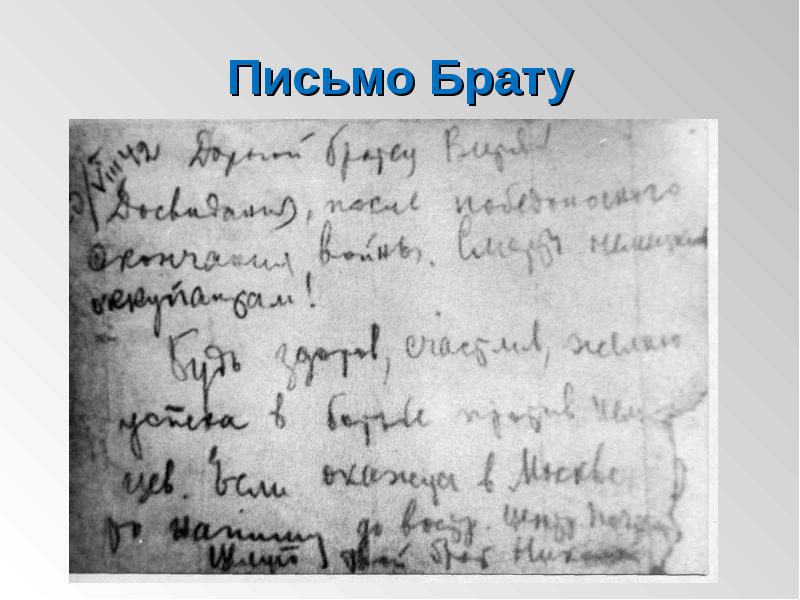 Письмо Брату
VIII 42 Дорогой братец Витя!
Досвидания, после победоносного
окончания войны. Смерть немецким
оккупантам!
Будь здоров, счастлив, желаю
успеха в борьбе против нем
цев. Если окажеца в Москве
то напишу до востр. Центр. Почта
твой брат